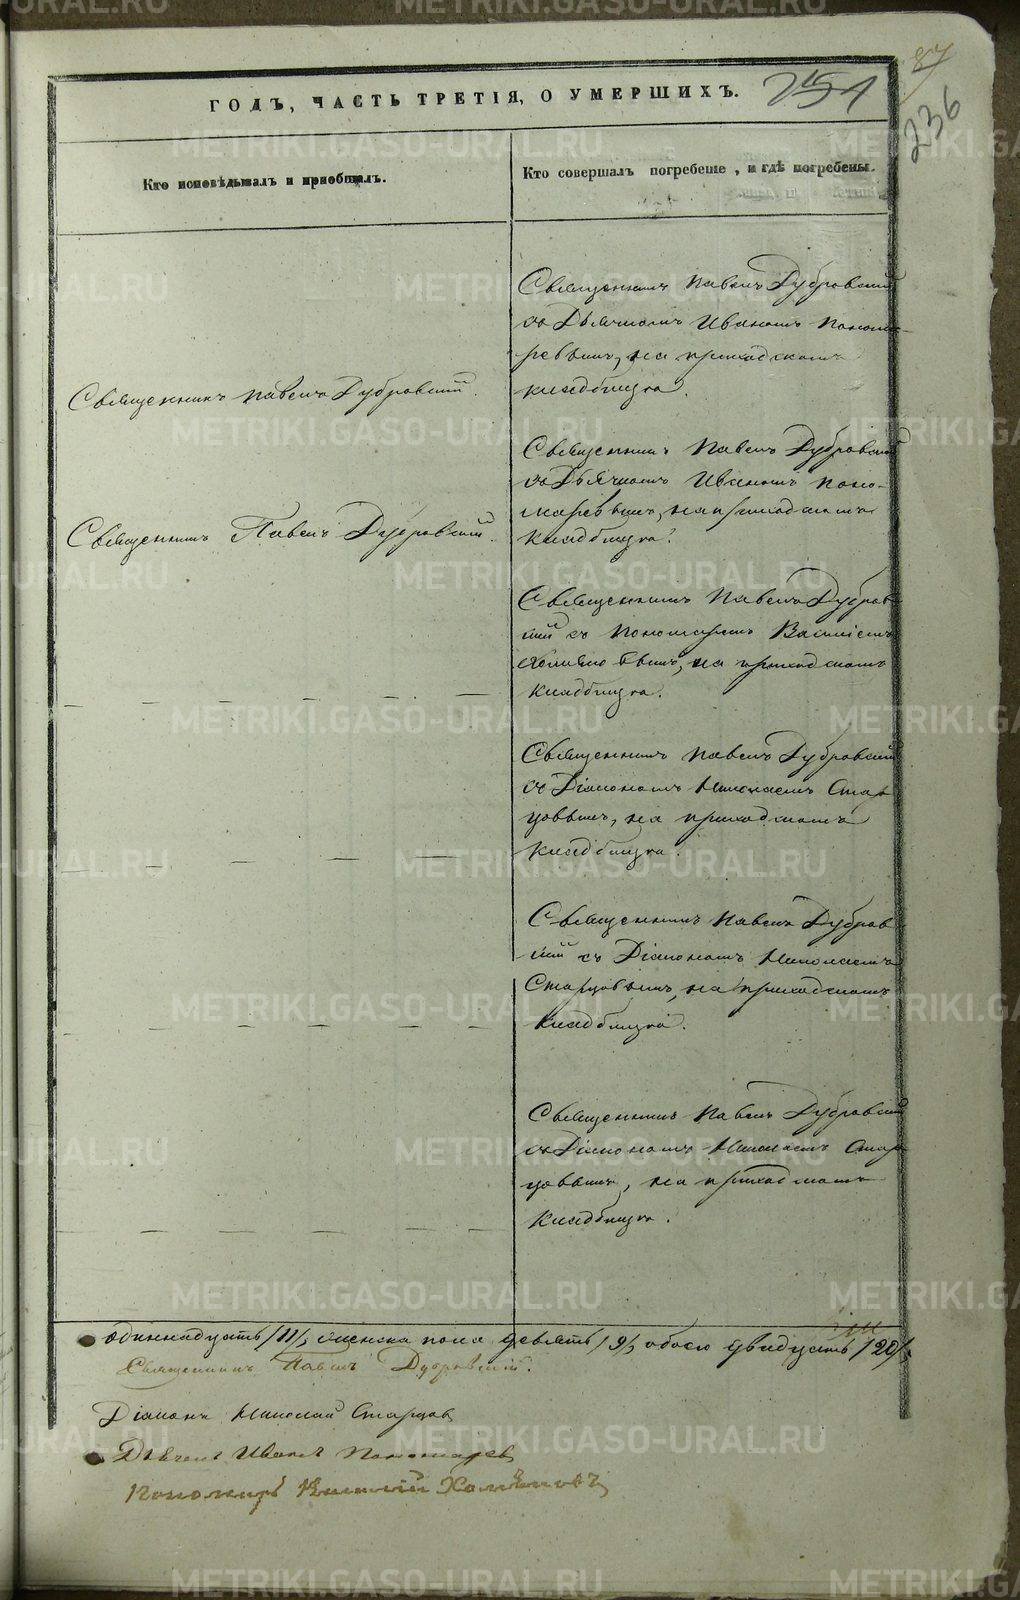 87
ГОДЪ, ЧАСТЬ ТРЕТІЯ, О УМЕРШИХЪ.
251
236
Кто исповѣдывалъ и приобщалъ.
Кто совершалъ погребеніе, и гдѣ погребены.
Священникъ Павелъ Дубровскій
съ Дьячкомъ Иваномъ Понома-
ревымъ, на приходскомъ
кладбищѣ.
Священникъ Павелъ Дубровскій.
Священникъ Павелъ Дубровскій
съ Дьячкомъ Иваномъ Поно-
маревымъ, на приходскомъ
кладбищѣ.
Священникъ Павелъ Дубровскій.
Священникъ Павелъ Дубров-
скій съ Пономаремъ Василіемъ
на приходскомъ
кладбищѣ.
Священникъ Павелъ Дубровскій
съ Діакономъ Николаемъ Стар-
цовымъ, на приходскомъ
кладбищѣ.
Священникъ Павелъ Дубров-
скій съ Діакономъ Николаемъ
Старцовымъ, на приходскомъ
кладбищѣ.
Священникъ Павелъ Дубровскій
съ Діакономъ Николаемъ Стар-
цовымъ, на приходскомъ
кладбищѣ.
одиннадцать /11/, женска пола девять /9/, обоего двадцать /20/.
Священникъ Павелъ Дубровскій.
Діаконъ Николай Старцов
Дьячекъ Иванъ Пономарев
Пономарь Василій
METRIKI.GASO-URAL.RU